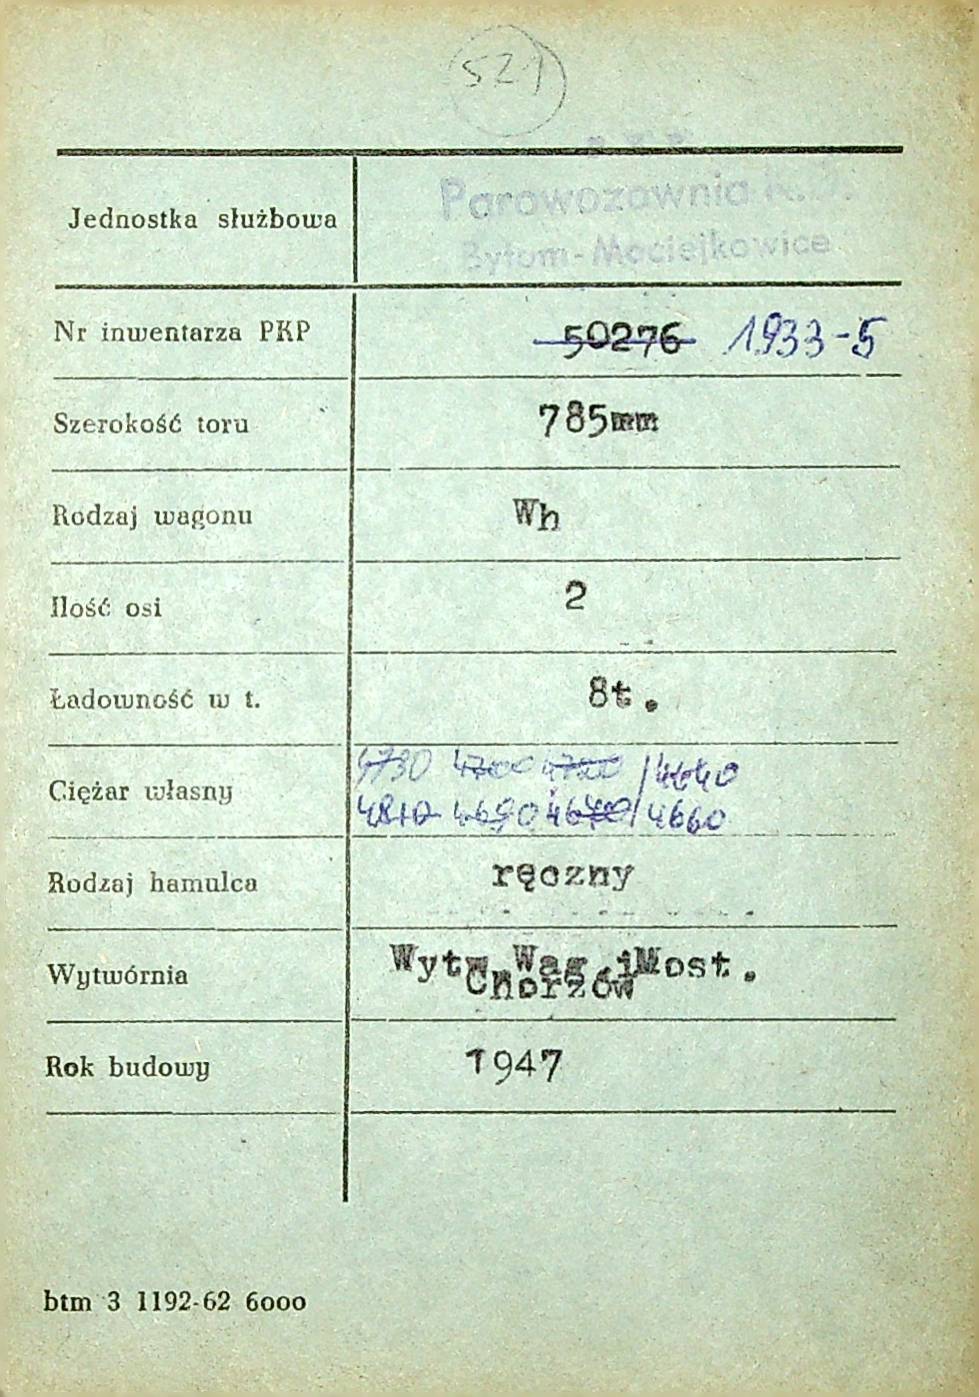 521
Jednostka służbowa
Parowozownia
Bytom-Maciejkowice
Nr inwentarza PKP 50276 1933-5
Szerokość toru 785mm
Rodzaj wagonu Wh
Ilość osi 2
Ładowność w t. 8t.
Ciężar własny 4730 4700 4640
4810 4690 4660
Rodzaj hamulca ręczny
Wytwórnia Wytw.Wag.iMost.
Chorzów
Rok budowy 1947
btm 3 1192-62 6000